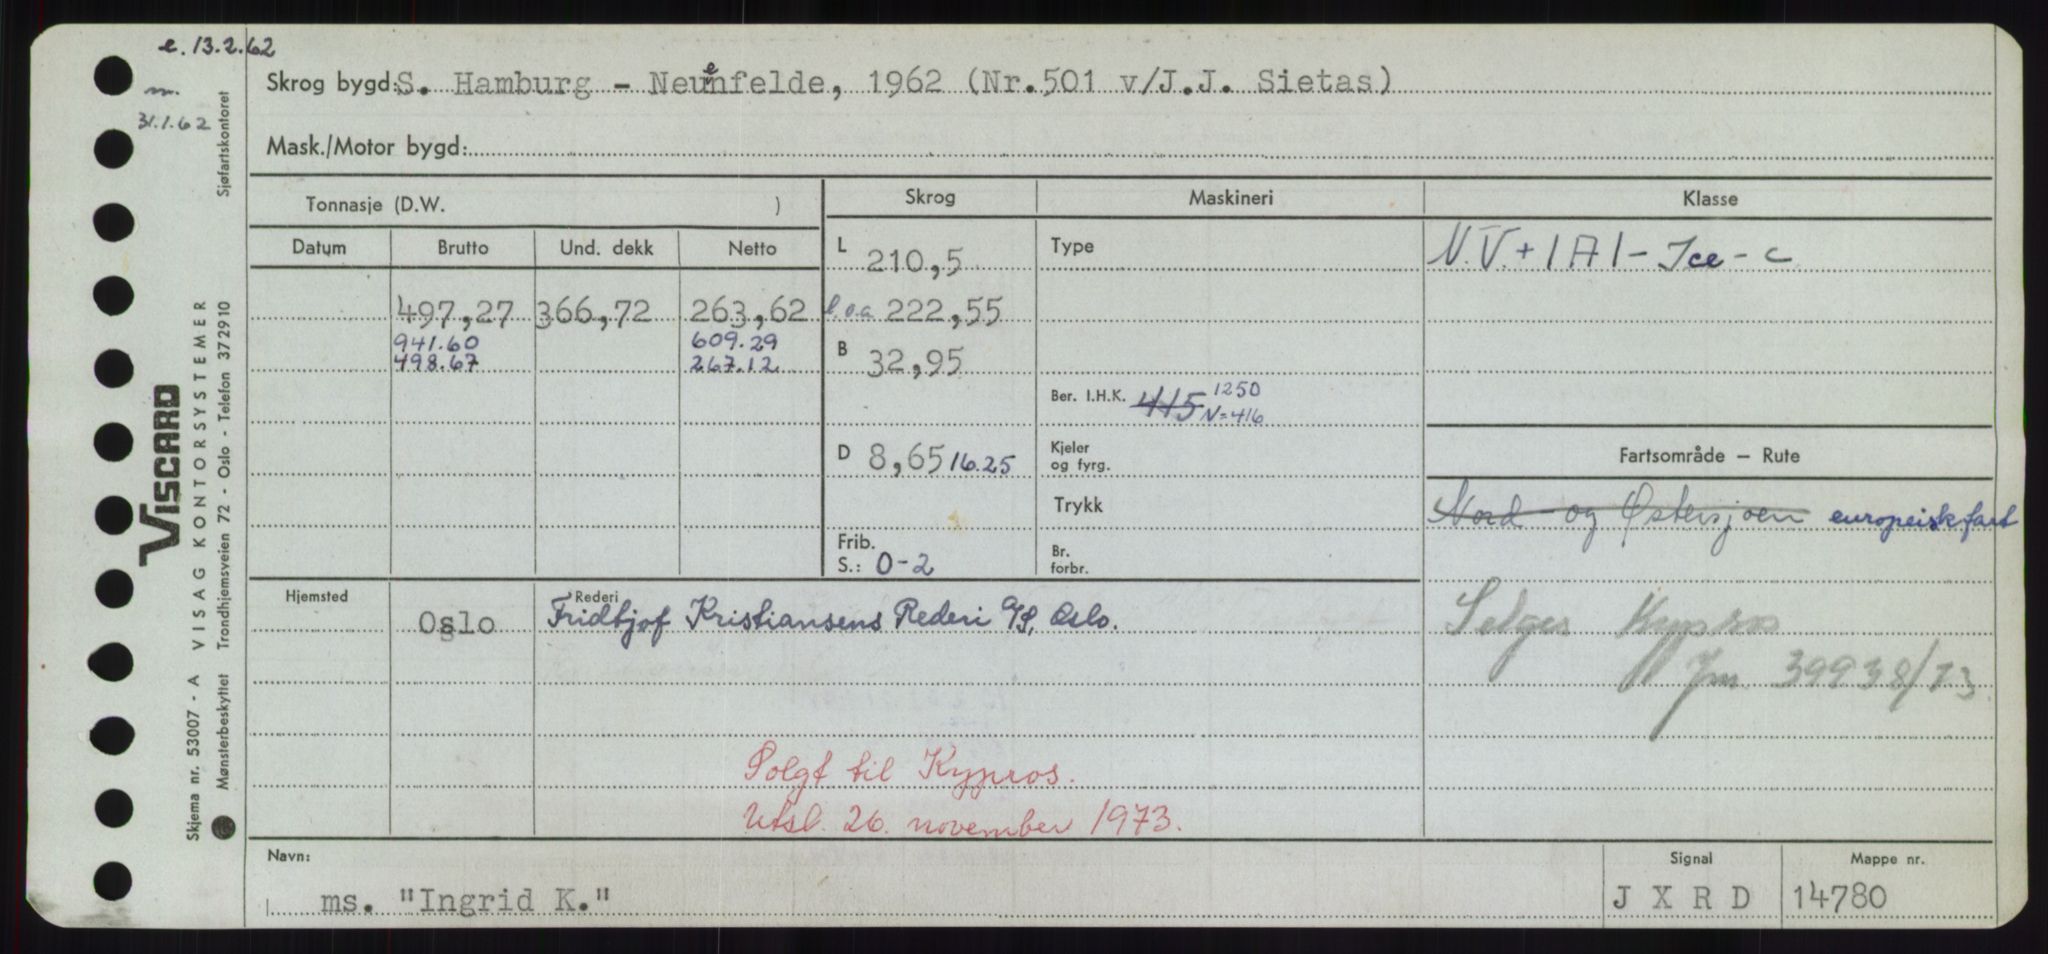 e. 13.2.62
m.
31.1.62
Skrog bygd: S. Hamburg - Neuenfelde, 1962 (Nr.501 v/J.J. Sietas)
Mask./Motor bygd:
Tonnasje (D.W. )
Skrog
Maskineri
Klasse
Datum Brutto Und. dekk Netto
L 210,5
Type
N.V. + 1A1 - Ice - C
497,27 366,72 263,62
l.o.a 222,55
941.60 609.29
498.67 267.12
B 32,95
Ber. I.H.K. 415 1250
N=416
D 8,65 16.25
Kjeler
og fyrg.
Fartsområde — Rute
Trykk
Nord og Østersjøen europeisk fart
Frib.
S.: 0-2
Br.
forbr.
Hjemsted Oslo
Rederi
Fridtjof Kristiansens Rederi A/S, Oslo.
Selges Kypros
Jm. 39938/73
Solgt til Kypros.
Utsl. 26. november 1973.
Navn:
ms. "Ingrid K."
Signal
J X R D
Mappe nr.
14780
Skjema nr. 53007 - A VISAG KONTORSYSTEMER
Mønsterbeskyttet Trondhjemsveien 72 - Oslo - Telefon 372910 Sjøfartskontoret
VISCARD